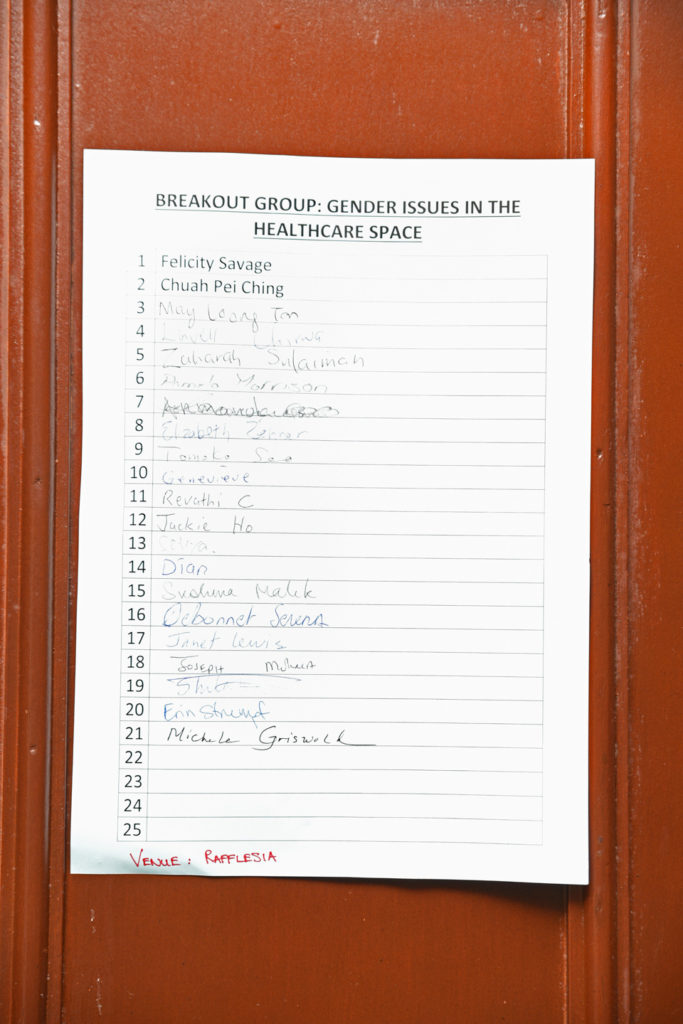 BREAKOUT GROUP: GENDER ISSUES IN THE
HEALTHCARE SPACE
1 Felicity Savage
2 Chuah Pei Ching
3 May Leong Ton
4
5 Zaharah Sulaiman
6 Morrison
7
8 Elizabeth
9 Tomoko
10 Genevieve
11 Revathi C
12 Jackie Ho
13
14 Dian
15 Malik
16
17 Janet Lewis
18 JOSEPH
19
20 Erin Strumpf
21 Michele Griswold
22
23
24
25
VENUE: RAFFLESIA